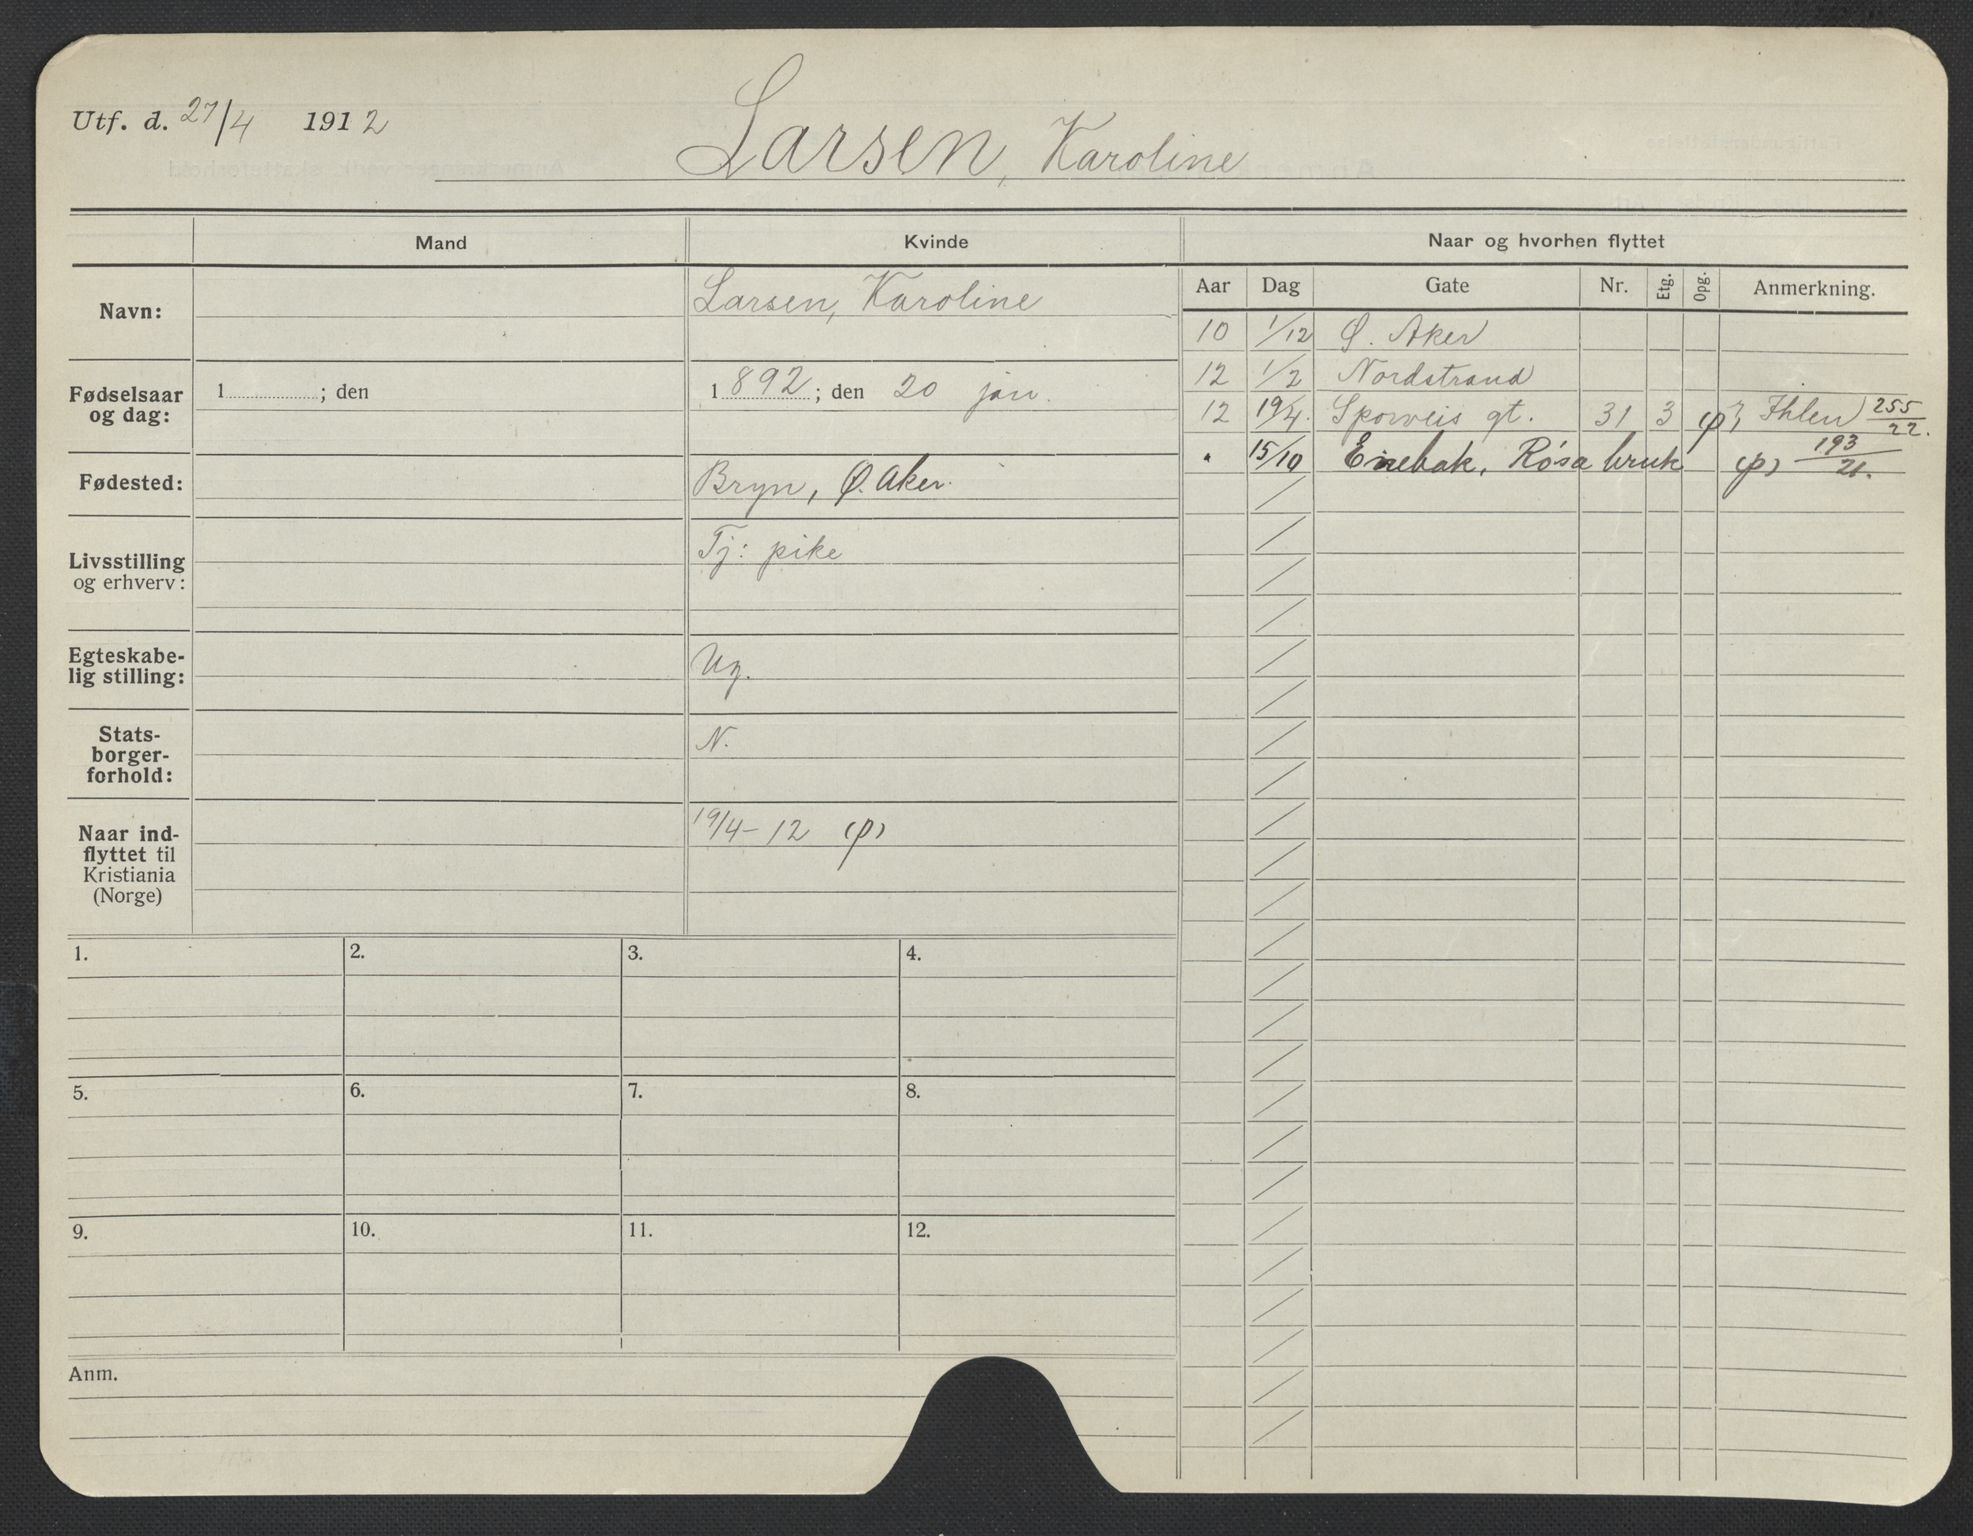 Utf. d. 27/4 1912
Larsen, Karoline
Mand Kvinde Naar og hvorhen flyttet
Aar Dag Gate Nr. Etg. Opg. Anmerkning.
Navn: Larsen, Karoline
10 1/12 Ø. Aker
12 1/2 Nordstrand
Fødselsaar og dag: 1 ; den 1892 ; den 20 jan.
12 19/4. Sporveis gt. 31 3 (p) Ihlen 255/22.
" 15/10 Enebak, Røsa bruk (p) 193/21.
Fødested: Bryn, Ø. Aker.
Livsstilling
og erhverv: Tj: pike
Egteskabe-
lig stilling: Ug.
Stats-
borger-
forhold: N.
Naar ind-
flyttet til
Kristiania
(Norge) 19/4-12 (p)
1. 2. 3. 4.
5. 6. 7. 8.
9. 10. 11. 12.
Anm.